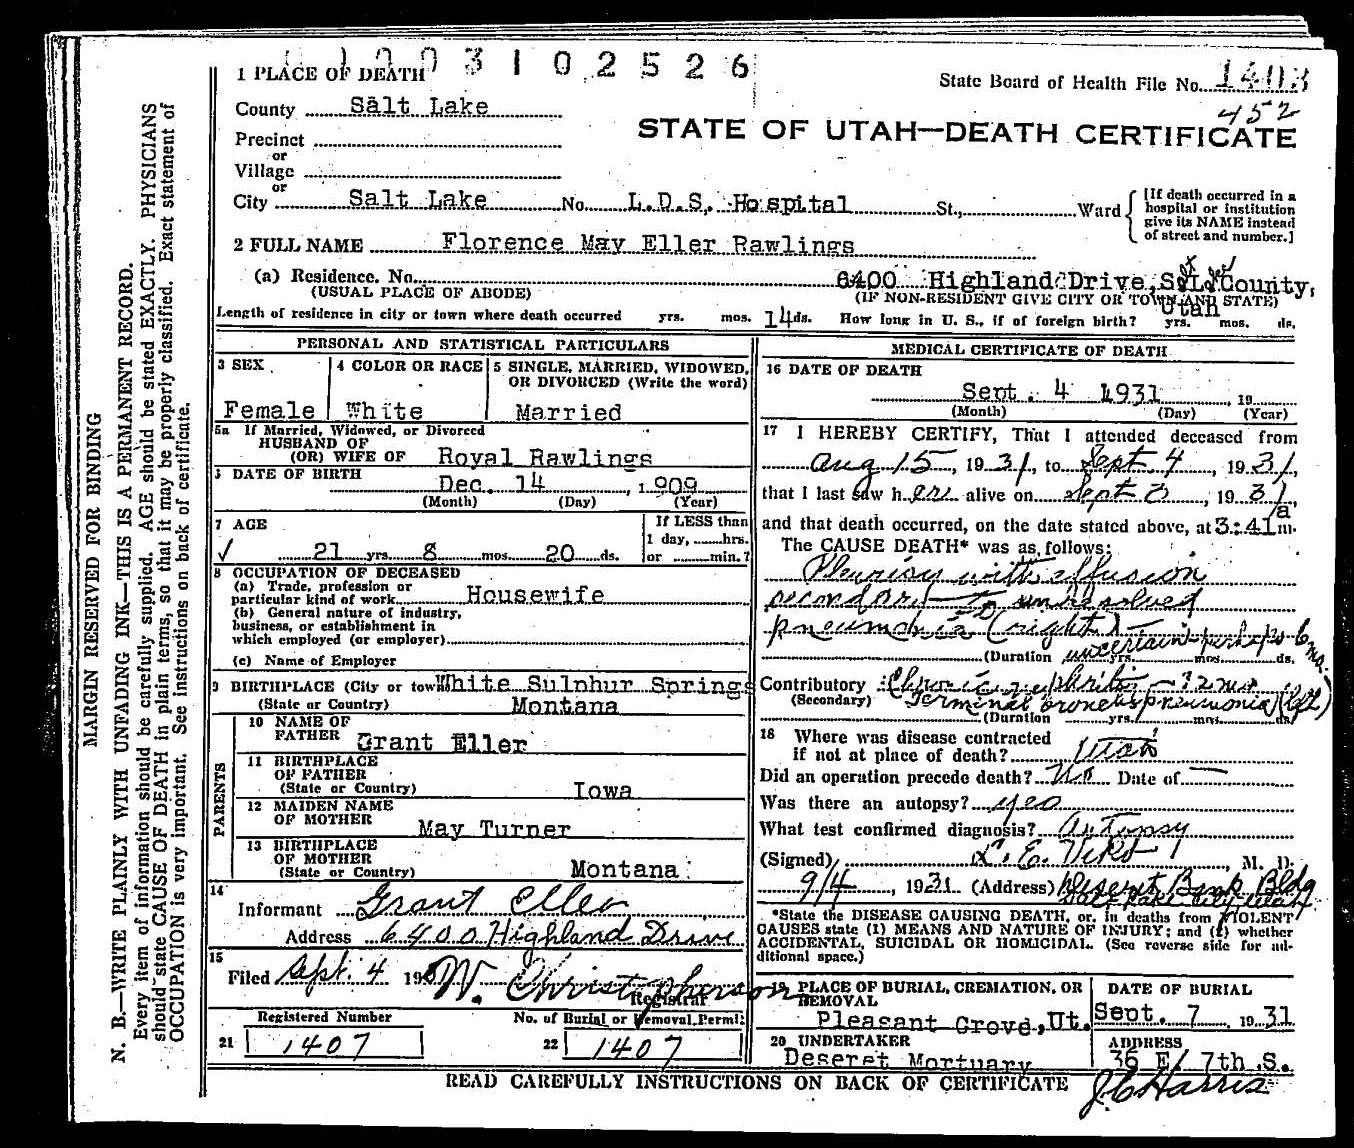 3102526
1 PLACE OF DEATH
State Board of Health File No. 1403
452
County Salt Lake
STATE OF UTAH—DEATH CERTIFICATE
Precinct
or
Village
or
City Salt Lake No. L.D.S. Hospital St., Ward
[If death occurred in a
hospital or institution
give its NAME instead
of street and number.]
2 FULL NAME Florence May Eller Rawlings
(a) Residence. No. 6400 Highland Drive, S.L. County,
Utah
(USUAL PLACE OF ABODE) (IF NON-RESIDENT GIVE CITY OR TOWN AND STATE)
Length of residence in city or town where death occurred yrs. mos. 14 ds. How long in U. S., if of foreign birth? yrs. mos. ds.
PERSONAL AND STATISTICAL PARTICULARS
3 SEX
Female
4 COLOR OR RACE
White
5 SINGLE, MARRIED, WIDOWED,
OR DIVORCED (Write the word)
Married
5a If Married, Widowed, or Divorced
HUSBAND OF
(OR) WIFE OF Royal Rawlings
DATE OF BIRTH
Dec. 14, 1909
(Month) (Day) (Year)
7 AGE
21 yrs. 8 mos. 20 ds.
If LESS than
1 day, hrs.
or min.?
8 OCCUPATION OF DECEASED
(a) Trade, profession or
particular kind of work Housewife
(b) General nature of industry,
business, or establishment in
which employed (or employer)
(c) Name of Employer
9 BIRTHPLACE (City or town) White Sulphur Springs
(State or Country) Montana
PARENTS
10 NAME OF
FATHER Grant Eller
11 BIRTHPLACE
OF FATHER
(State or Country) Iowa
12 MAIDEN NAME
OF MOTHER May Turner
13 BIRTHPLACE
OF MOTHER
(State or Country) Montana
14
Informant Grant Eller
Address 6400 Highland Drive
15
Filed Sept. 4 193 W. Christopherson
Registrar
Registered Number
21 1407
No. of Burial or Removal Permit
22 1407
MEDICAL CERTIFICATE OF DEATH
16 DATE OF DEATH
Sept. 4 1931, 19
(Month) (Day) (Year)
17 I HEREBY CERTIFY, That I attended deceased from
Aug 15, 1931, to Sept 4, 1931,
that I last saw her alive on Sept 3, 1931,
and that death occurred, on the date stated above, at 3:41 a m.
The CAUSE DEATH* was as follows:
Pleurisy with effusion
secondary to unresolved
pneumonia (right)—
(Duration uncertain perhaps 6 mo. yrs. mos. ds.
Contributory Chronic nephritis - ? 2 mos
(Secondary) Terminal bronchopneumonia (left)
(Duration yrs. mos. ds.
18 Where was disease contracted
if not at place of death? Utah
Did an operation precede death? No Date of —
Was there an autopsy? yes
What test confirmed diagnosis? Autopsy
(Signed) L. E. Viko, M. D.
9/4, 1931 (Address) Deseret Bank Bldg
Salt Lake City Utah
*State the DISEASE CAUSING DEATH, or, in deaths from VIOLENT
CAUSES state (1) MEANS AND NATURE OF INJURY; and (2) whether
ACCIDENTAL, SUICIDAL OR HOMICIDAL. (See reverse side for ad-
ditional space.)
19 PLACE OF BURIAL, CREMATION, OR
REMOVAL
Pleasant Grove, Ut.
DATE OF BURIAL
Sept. 7, 1931
20 UNDERTAKER
Deseret Mortuary
ADDRESS
36 E/ 7th S.
READ CAREFULLY INSTRUCTIONS ON BACK OF CERTIFICATE
J C Harris
MARGIN RESERVED FOR BINDING
N. B.—WRITE PLAINLY WITH UNFADING INK—THIS IS A PERMANENT RECORD.
Every item of information should be carefully supplied. AGE should be stated EXACTLY. PHYSICIANS
should state CAUSE OF DEATH in plain terms, so that it may be properly classified. Exact statement of
OCCUPATION is very important. See instructions on back of certificate.